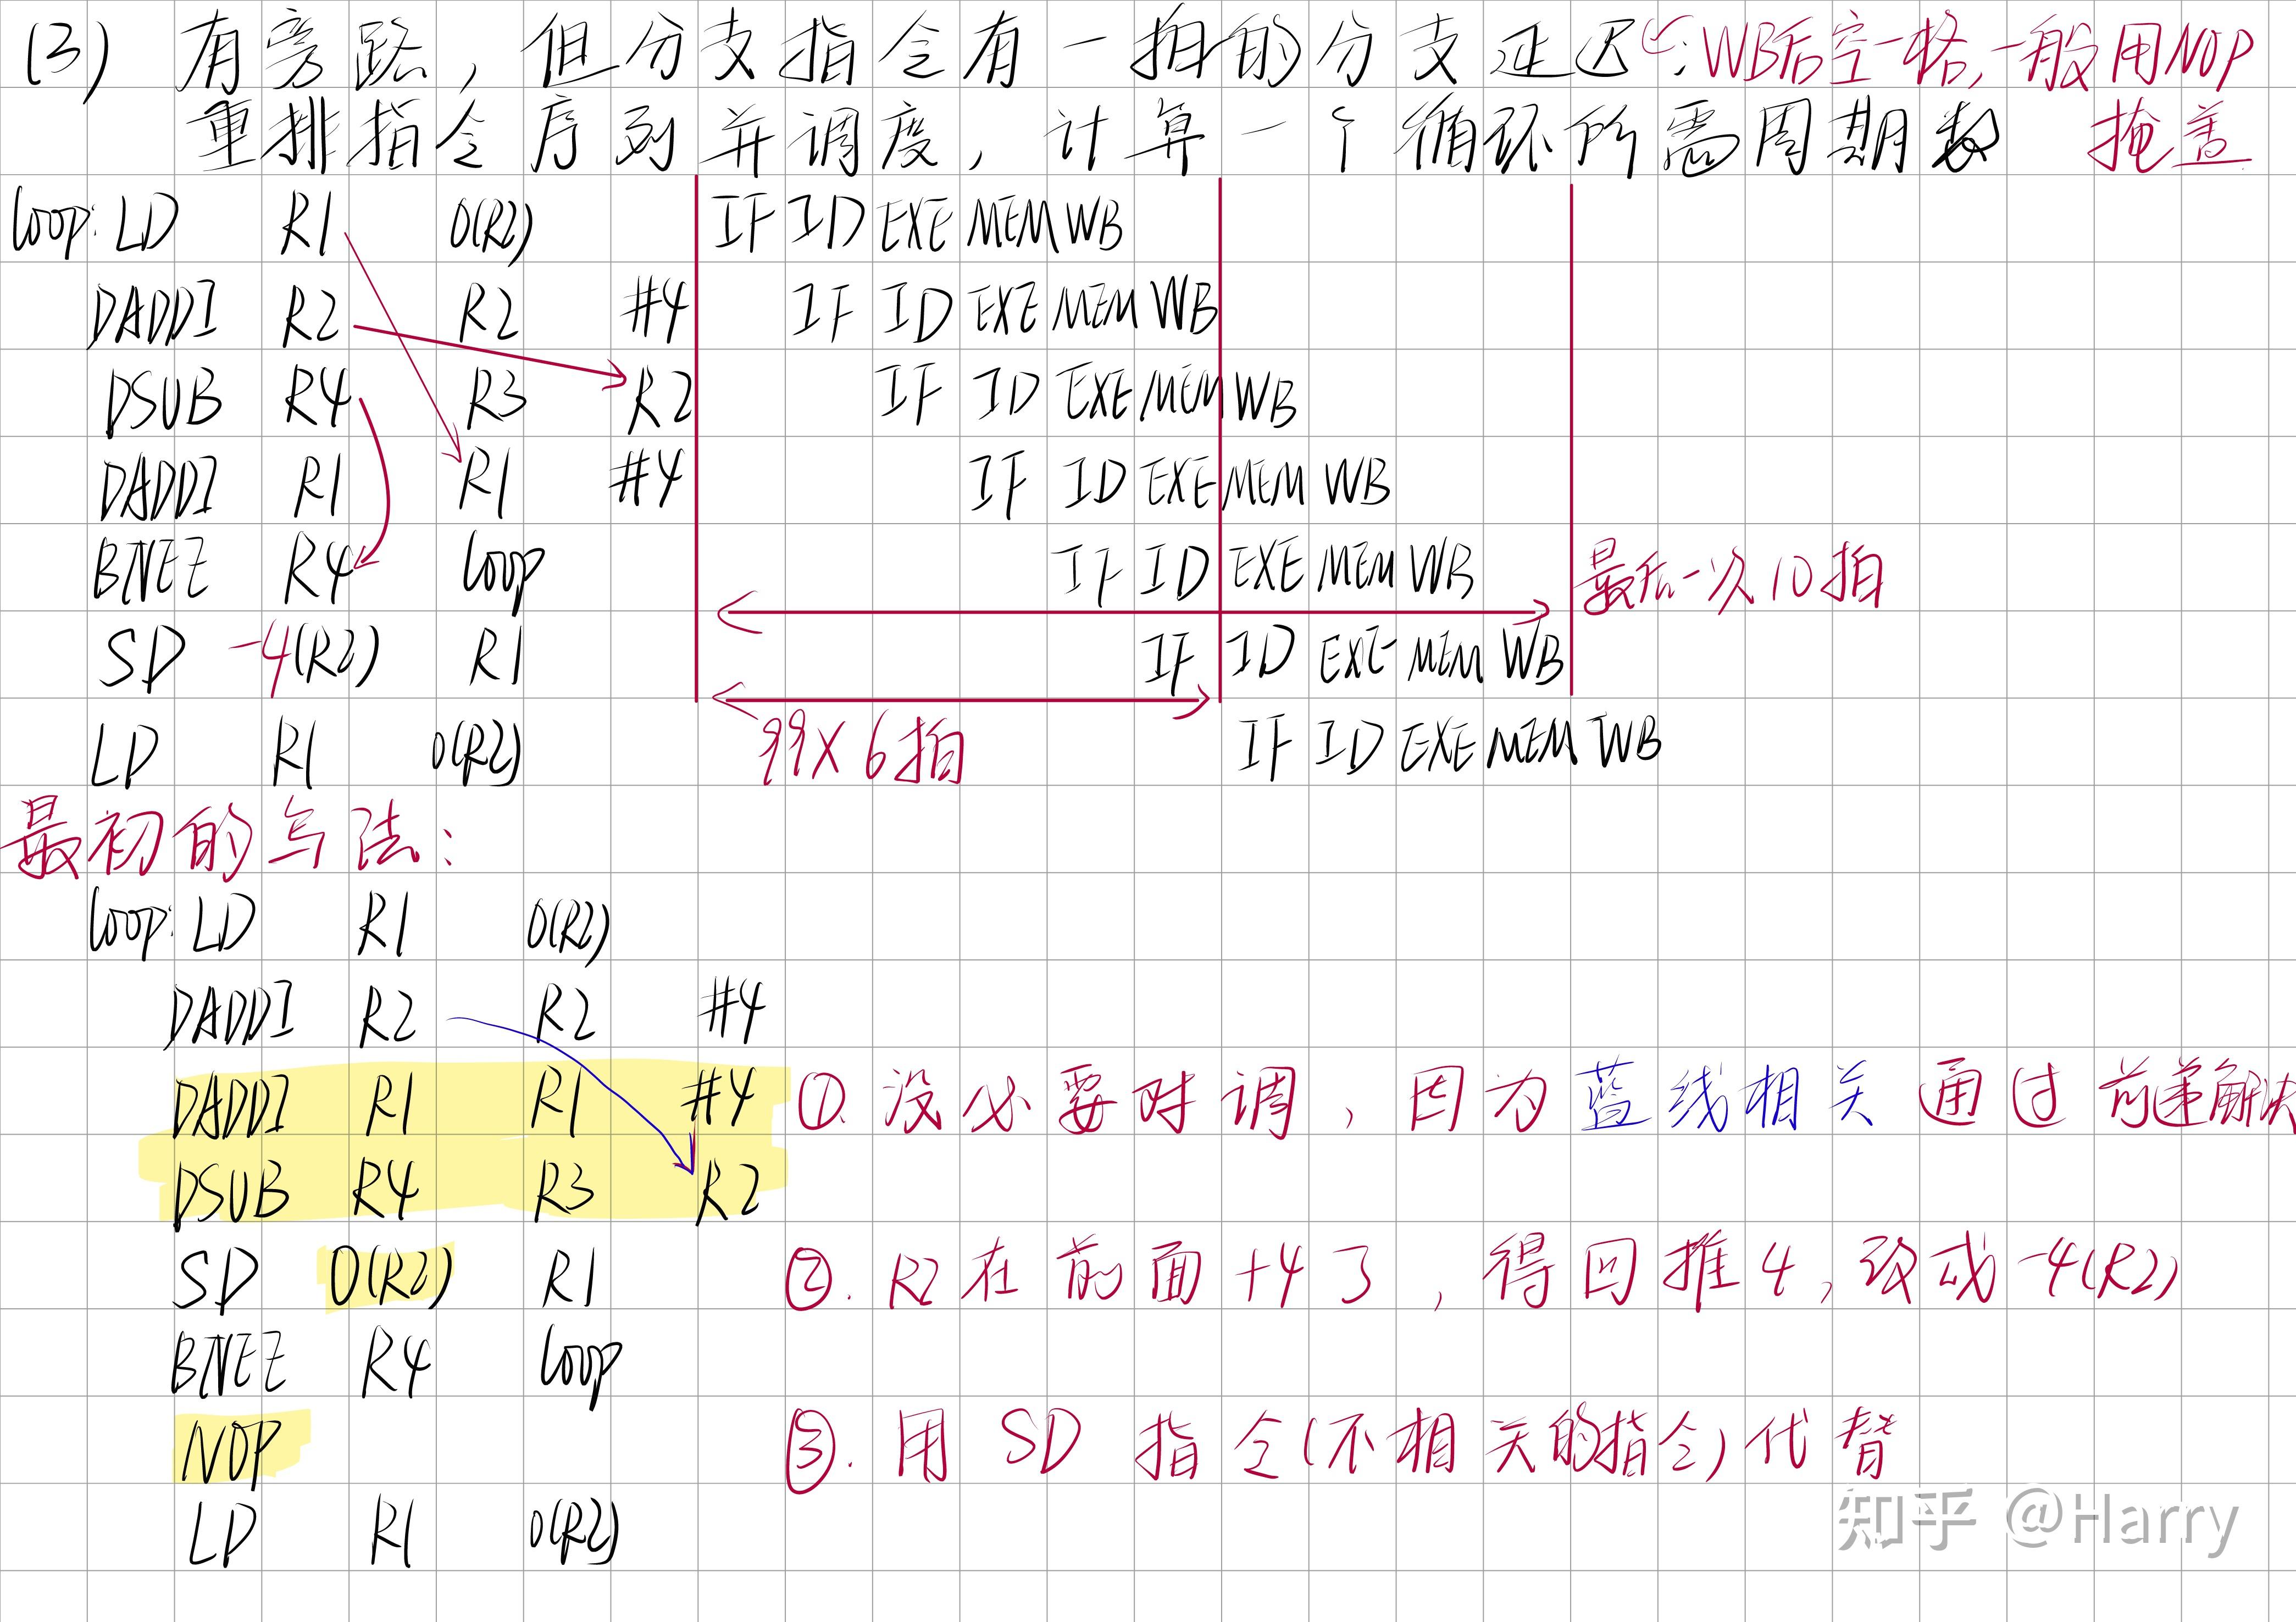 (3) 有旁路，但分支指令有一拍的分支延迟 : WB后空一格，一般用NOP
重排指令序列并调度，计算一个循环所需周期数 掩盖
loop: LD R1 0(R2) IF ID EXE MEM WB
DADDI R2 R2 #4 IF ID EXE MEM WB
DSUB R4 R3 R2 IF ID EXE MEM WB
DADDI R1 R1 #4 IF ID EXE MEM WB
BNEZ R4 loop IF ID EXE MEM WB 最后一次10拍
SD -4(R2) R1 IF ID EXE MEM WB
LD R1 0(R2) 99X6拍 IF ID EXE MEM WB
最初的写法：
loop: LD R1 0(R2)
DADDI R2 R2 #4
DADDI R1 R1 #4 ①. 没必要对调，因为蓝线相关通过前递解决
DSUB R4 R3 R2
SD 0(R2) R1 ②. R2在前面+4了，得回推4，改成-4(R2)
BNEZ R4 loop
NOP ③. 用SD指令(不相关的指令)代替
LD R1 0(R2)
知乎 @Harry